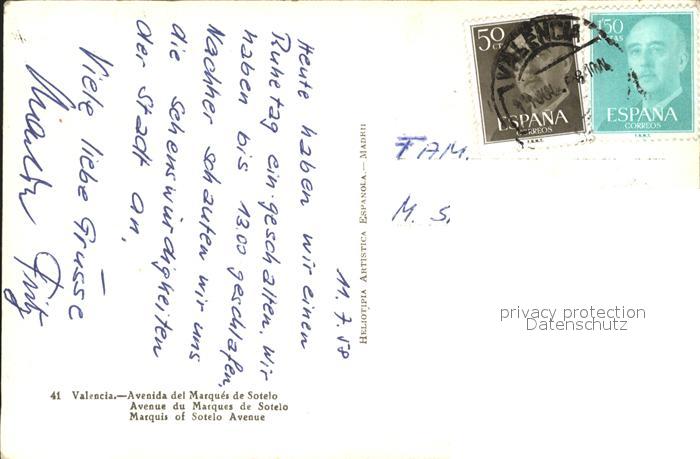 11.7.58
Heute haben wir einen
Ruhetag eingeschalten. Wir
haben bis 13.00 geschlafen,
Nachher schauten wir uns
die sehenswürdigkeiten
der Stadt an,
Viele liebe Grüsse
Fritz
FAM.
M. S.
50 CTS
ESPAÑA
CORREOS
F.N.M.T.
VALENCIA
1'50 PTAS
ESPAÑA
CORREOS
F.N.M.T.
HELIOTIPIA ARTISTICA ESPAÑOLA.— MADRID
privacy protection
Datenschutz
41 Valencia.—Avenida del Marqués de Sotelo
Avenue du Marques de Sotelo
Marquis of Sotelo Avenue